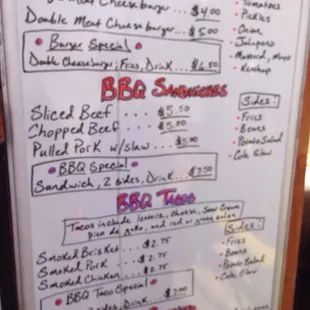 Meat Cheeseburger... $4.00
Double Meat Cheeseburger... $5.00
Burger Special
Double Cheeseburger, Fries, Drink... $6.50
• Tomatoes
• Pickles
• Onion
• Jalapeno
• Mustard, Mayo
• Ketchup
BBQ Sandwiches
Sliced Beef .... $5.50
Chopped Beef .... $5.00
Pulled Pork w/slaw... $5.00
BBQ Special
Sandwich, 2 sides, Drink... $7.50
Sides:
• Fries
• Beans
• Potato Salad
• Cole Slaw
BBQ Tacos
Tacos include lettuce, cheese, Sour Cream
pico de gallo, and red or green salsa
Smoked Brisket... $2.75
Smoked Pork... $2.75
Smoked Chicken... $2.75
BBQ Taco Special
sides, Drink... $7.00
Sides:
• Fries
• Beans
• Potato Salad
• Cole Slaw